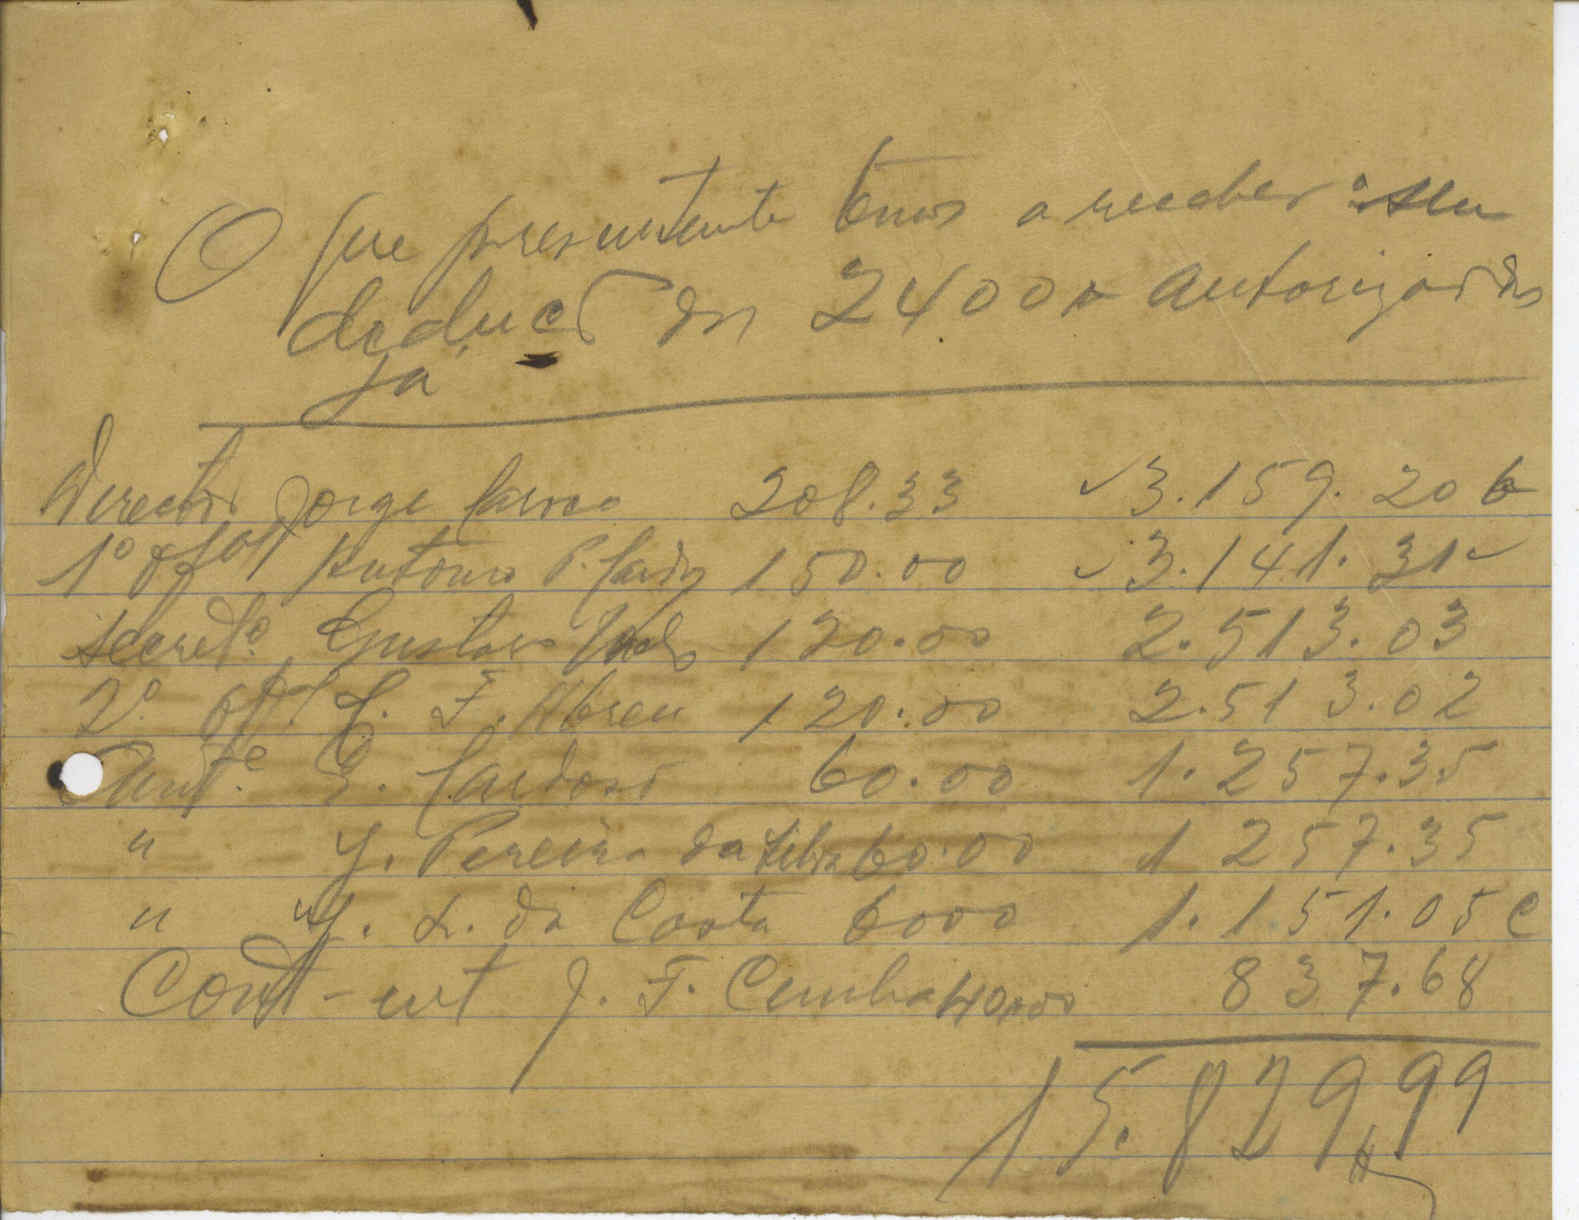 O que presentemente temos a receber sem
deducção dos 2400 autorizados
já
Director Jorge 208.33 3.159.20
1º Offal Antonio P. 150.00 3.141.31
Secretº Gustavo 120.00 2.513.03
2º Offl F. Abreu 120.00 2.513.02
Amte Cardoso 60.00 1.257.35
" J. Pereira da Silva 60.00 1 257.35
" J. L. da Costa 6000 1.151.05 C
Cont-int J. F. Cunha 40.00 837.68
15.829,99